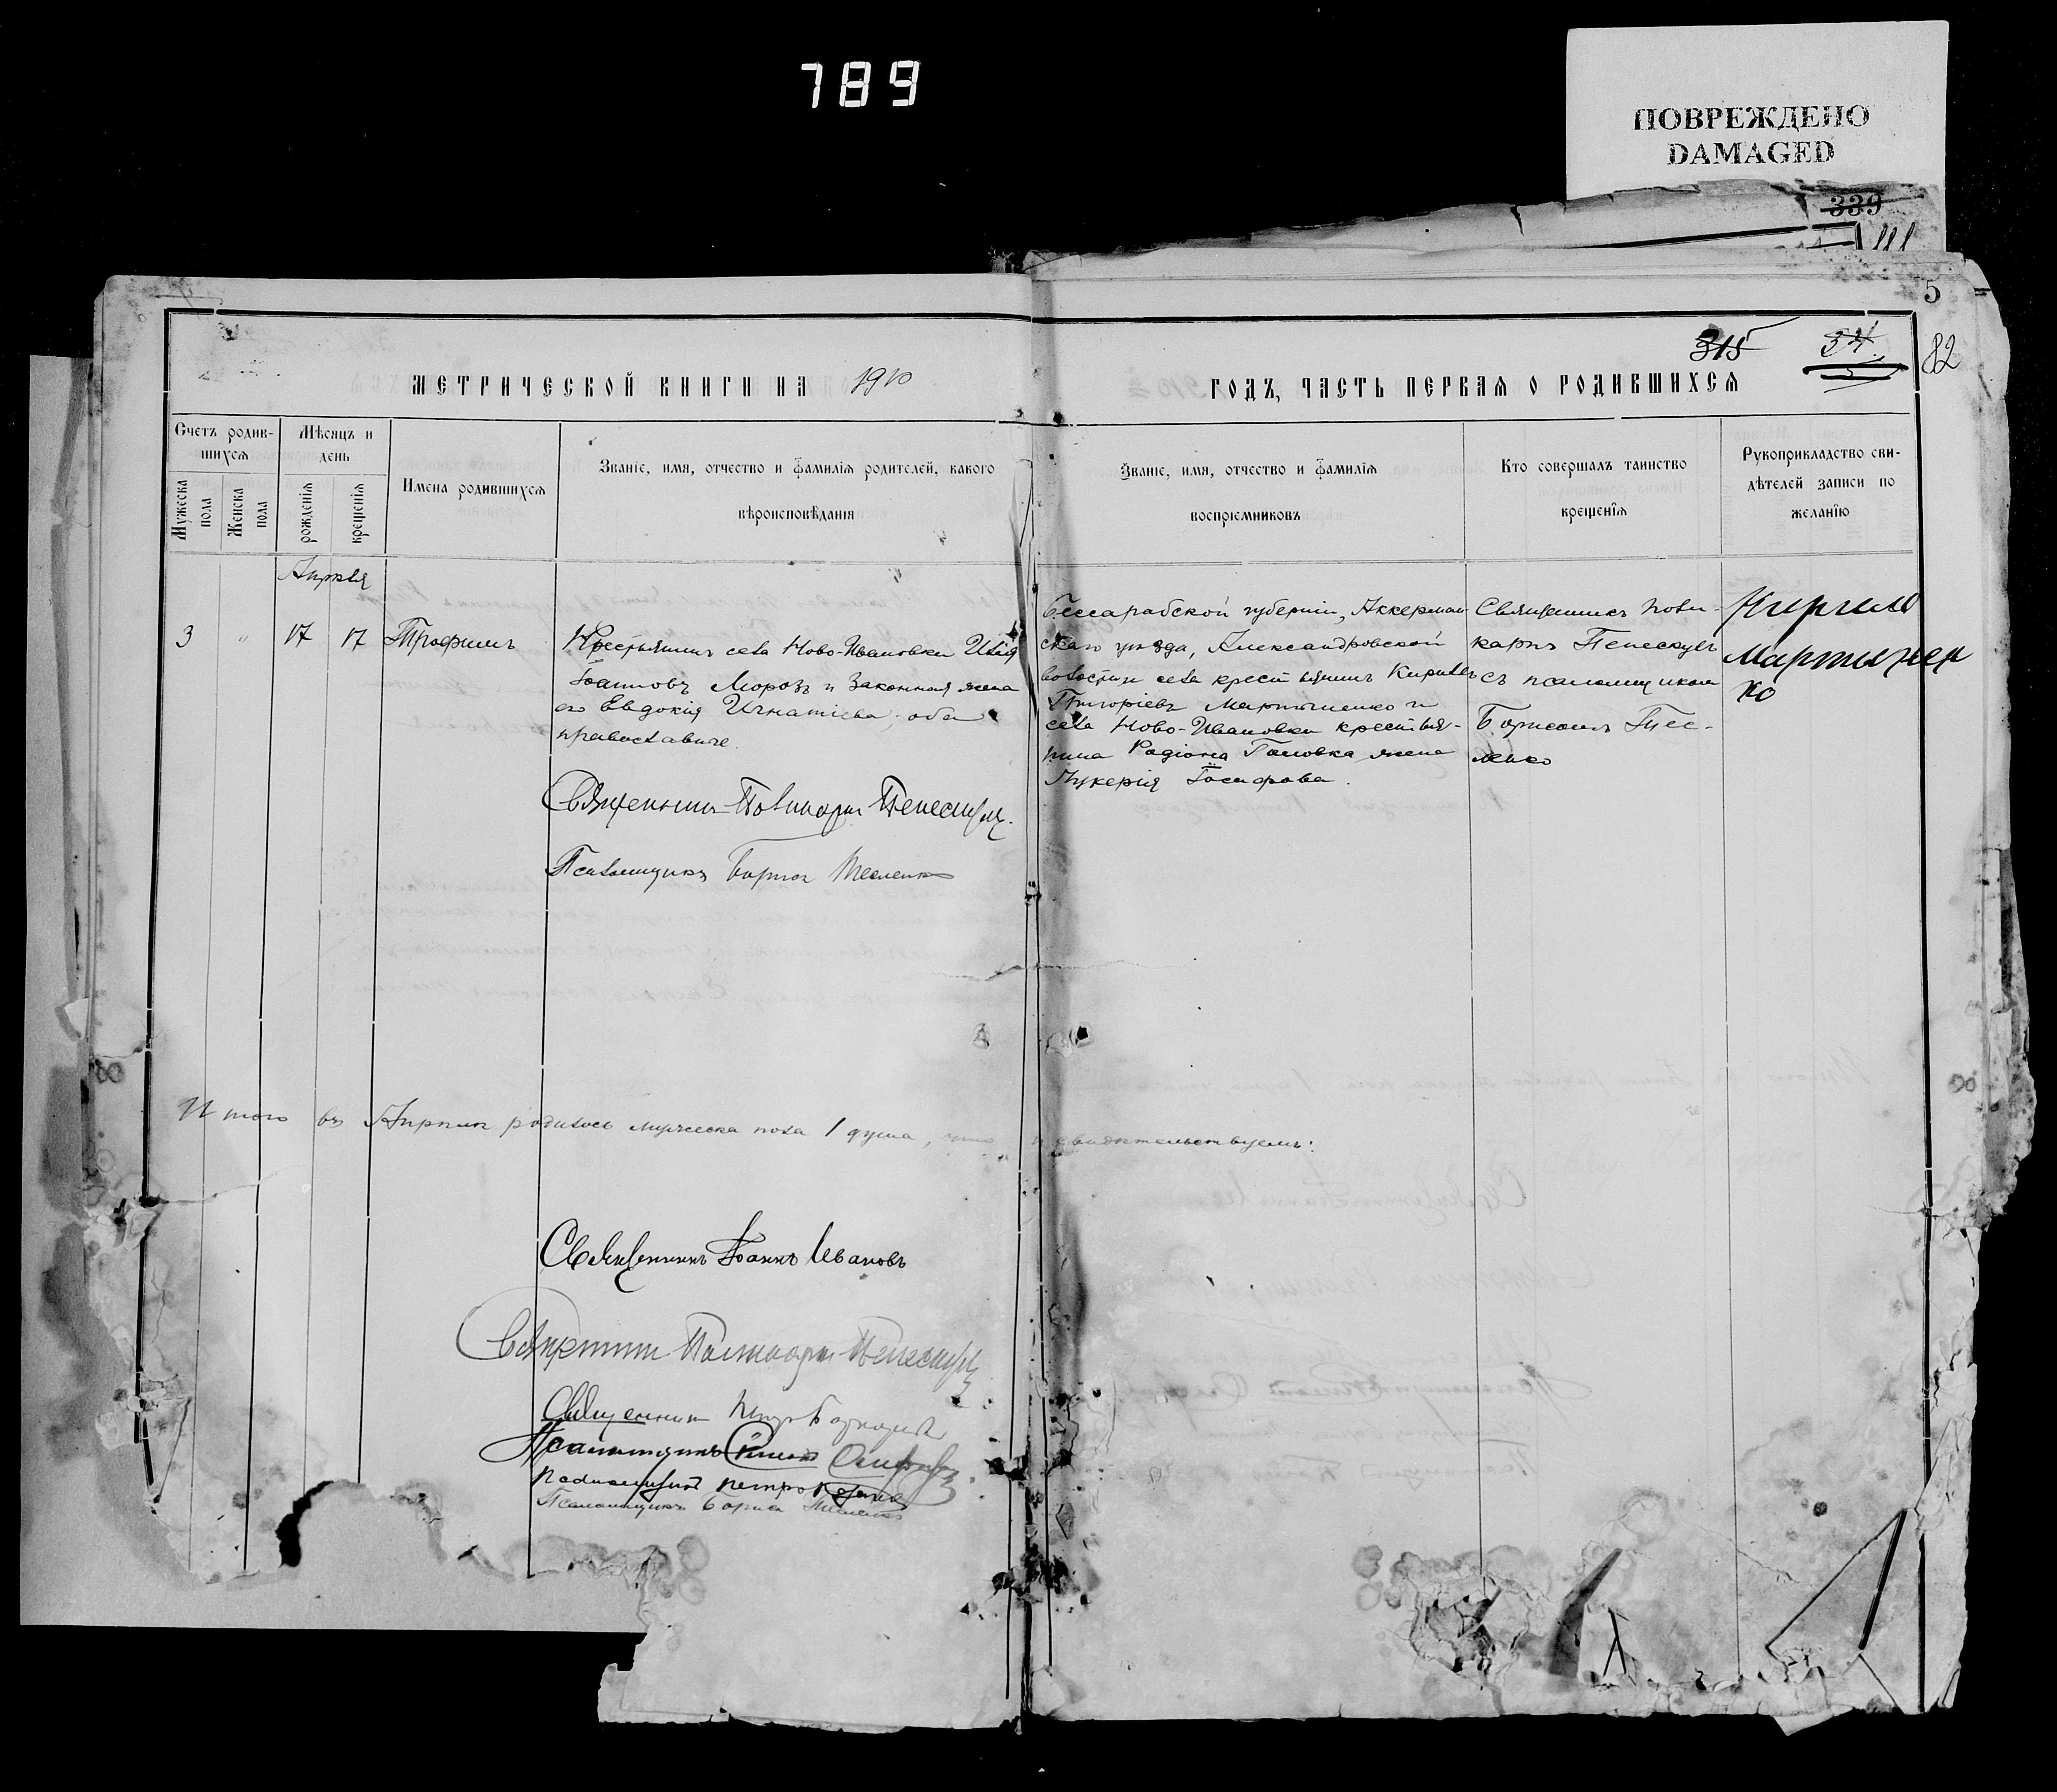 789
ПОВРЕЖДЕНО
DAMAGED
339
5
315
34
82
МЕТРИЧЕСКОЙ КНИГИ НА 1910
ГОДЪ, ЧАСТЬ ПЕРВАЯ О РОДИВШИХСЯ
Счетъ родив-
шихся
Мужеска
пола
Женска
пола
Мѣсяцъ и
день
рожденія
крещенія
Имена родившихся
Званіе, имя, отчество и фамилія родителей, какого
вѣроисповѣданія
Званіе, имя, отчество и фамилія
воспріемниковъ
Кто совершалъ таинство
крещенія
Рукоприкладство сви-
дѣтелей записи по
желанію
3
"
17
17
Трофимъ
Крестьянинъ села Ново-Ивановки
Іоанновъ Морозъ и законная жена
его Евдокія Игнатіева, оба
православные.
Священникъ Поликарпъ
Псаломщикъ Борисъ Тесленко
Бессарабской губерніи, Аккерман
скаго уѣзда, Александровской
волости села крестьянинъ Кириллъ
Григоріевъ Мартыненко и
села Ново-Ивановки крестьян-
ина Радіона жена
Гликерія Іосифова.
Священникъ Поли-
карпъ
съ псаломщикомъ
Борисомъ Тес-
ленко
Кирилъ
Мартынен
ко
Итого въ родилось мужеска пола 1 душа, что и свидѣтельствуемъ:
Священникъ Іоаннъ Ивановъ
Священникъ Поликарпъ
Священникъ
Псаломщикъ
Псаломщикъ Петръ
Псаломщикъ Борисъ Тесленко